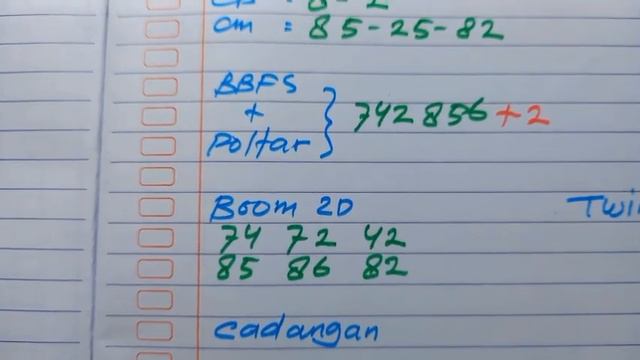 cm = 85-25-82
BBFS
+
Poltar } 742856 + 2
Boom 2D
74 72 42
85 86 82
cadangan